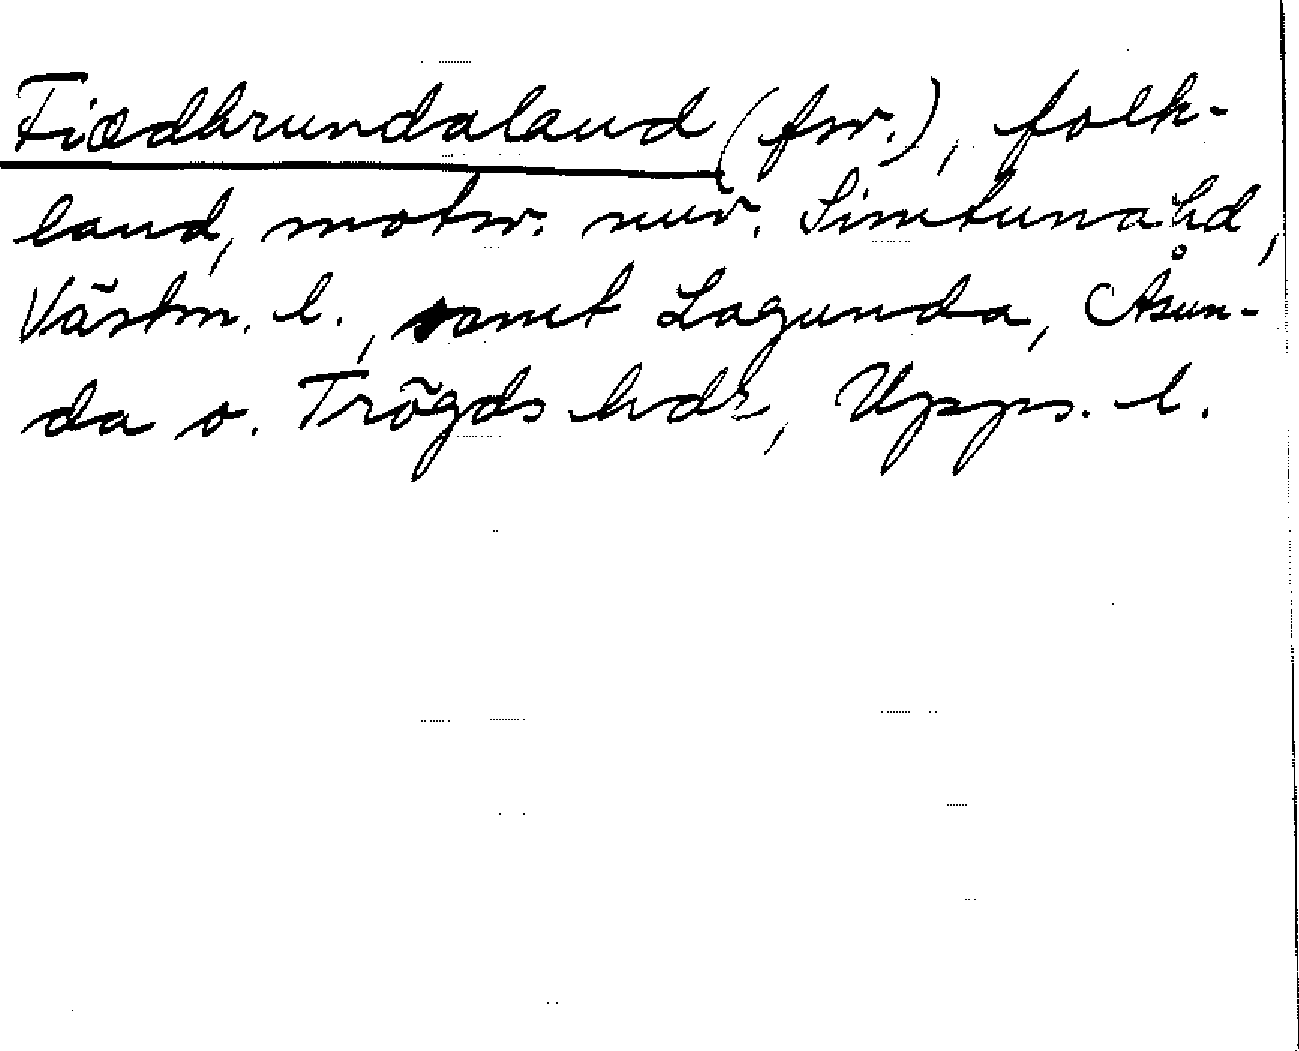 Fiædhrundaland (fsv.), folk-
land, motsv. nuv. Simtuna hd,
Västm. l., samt Lagunda, Åsun-
da o. Trögds hdr, Upps. l.